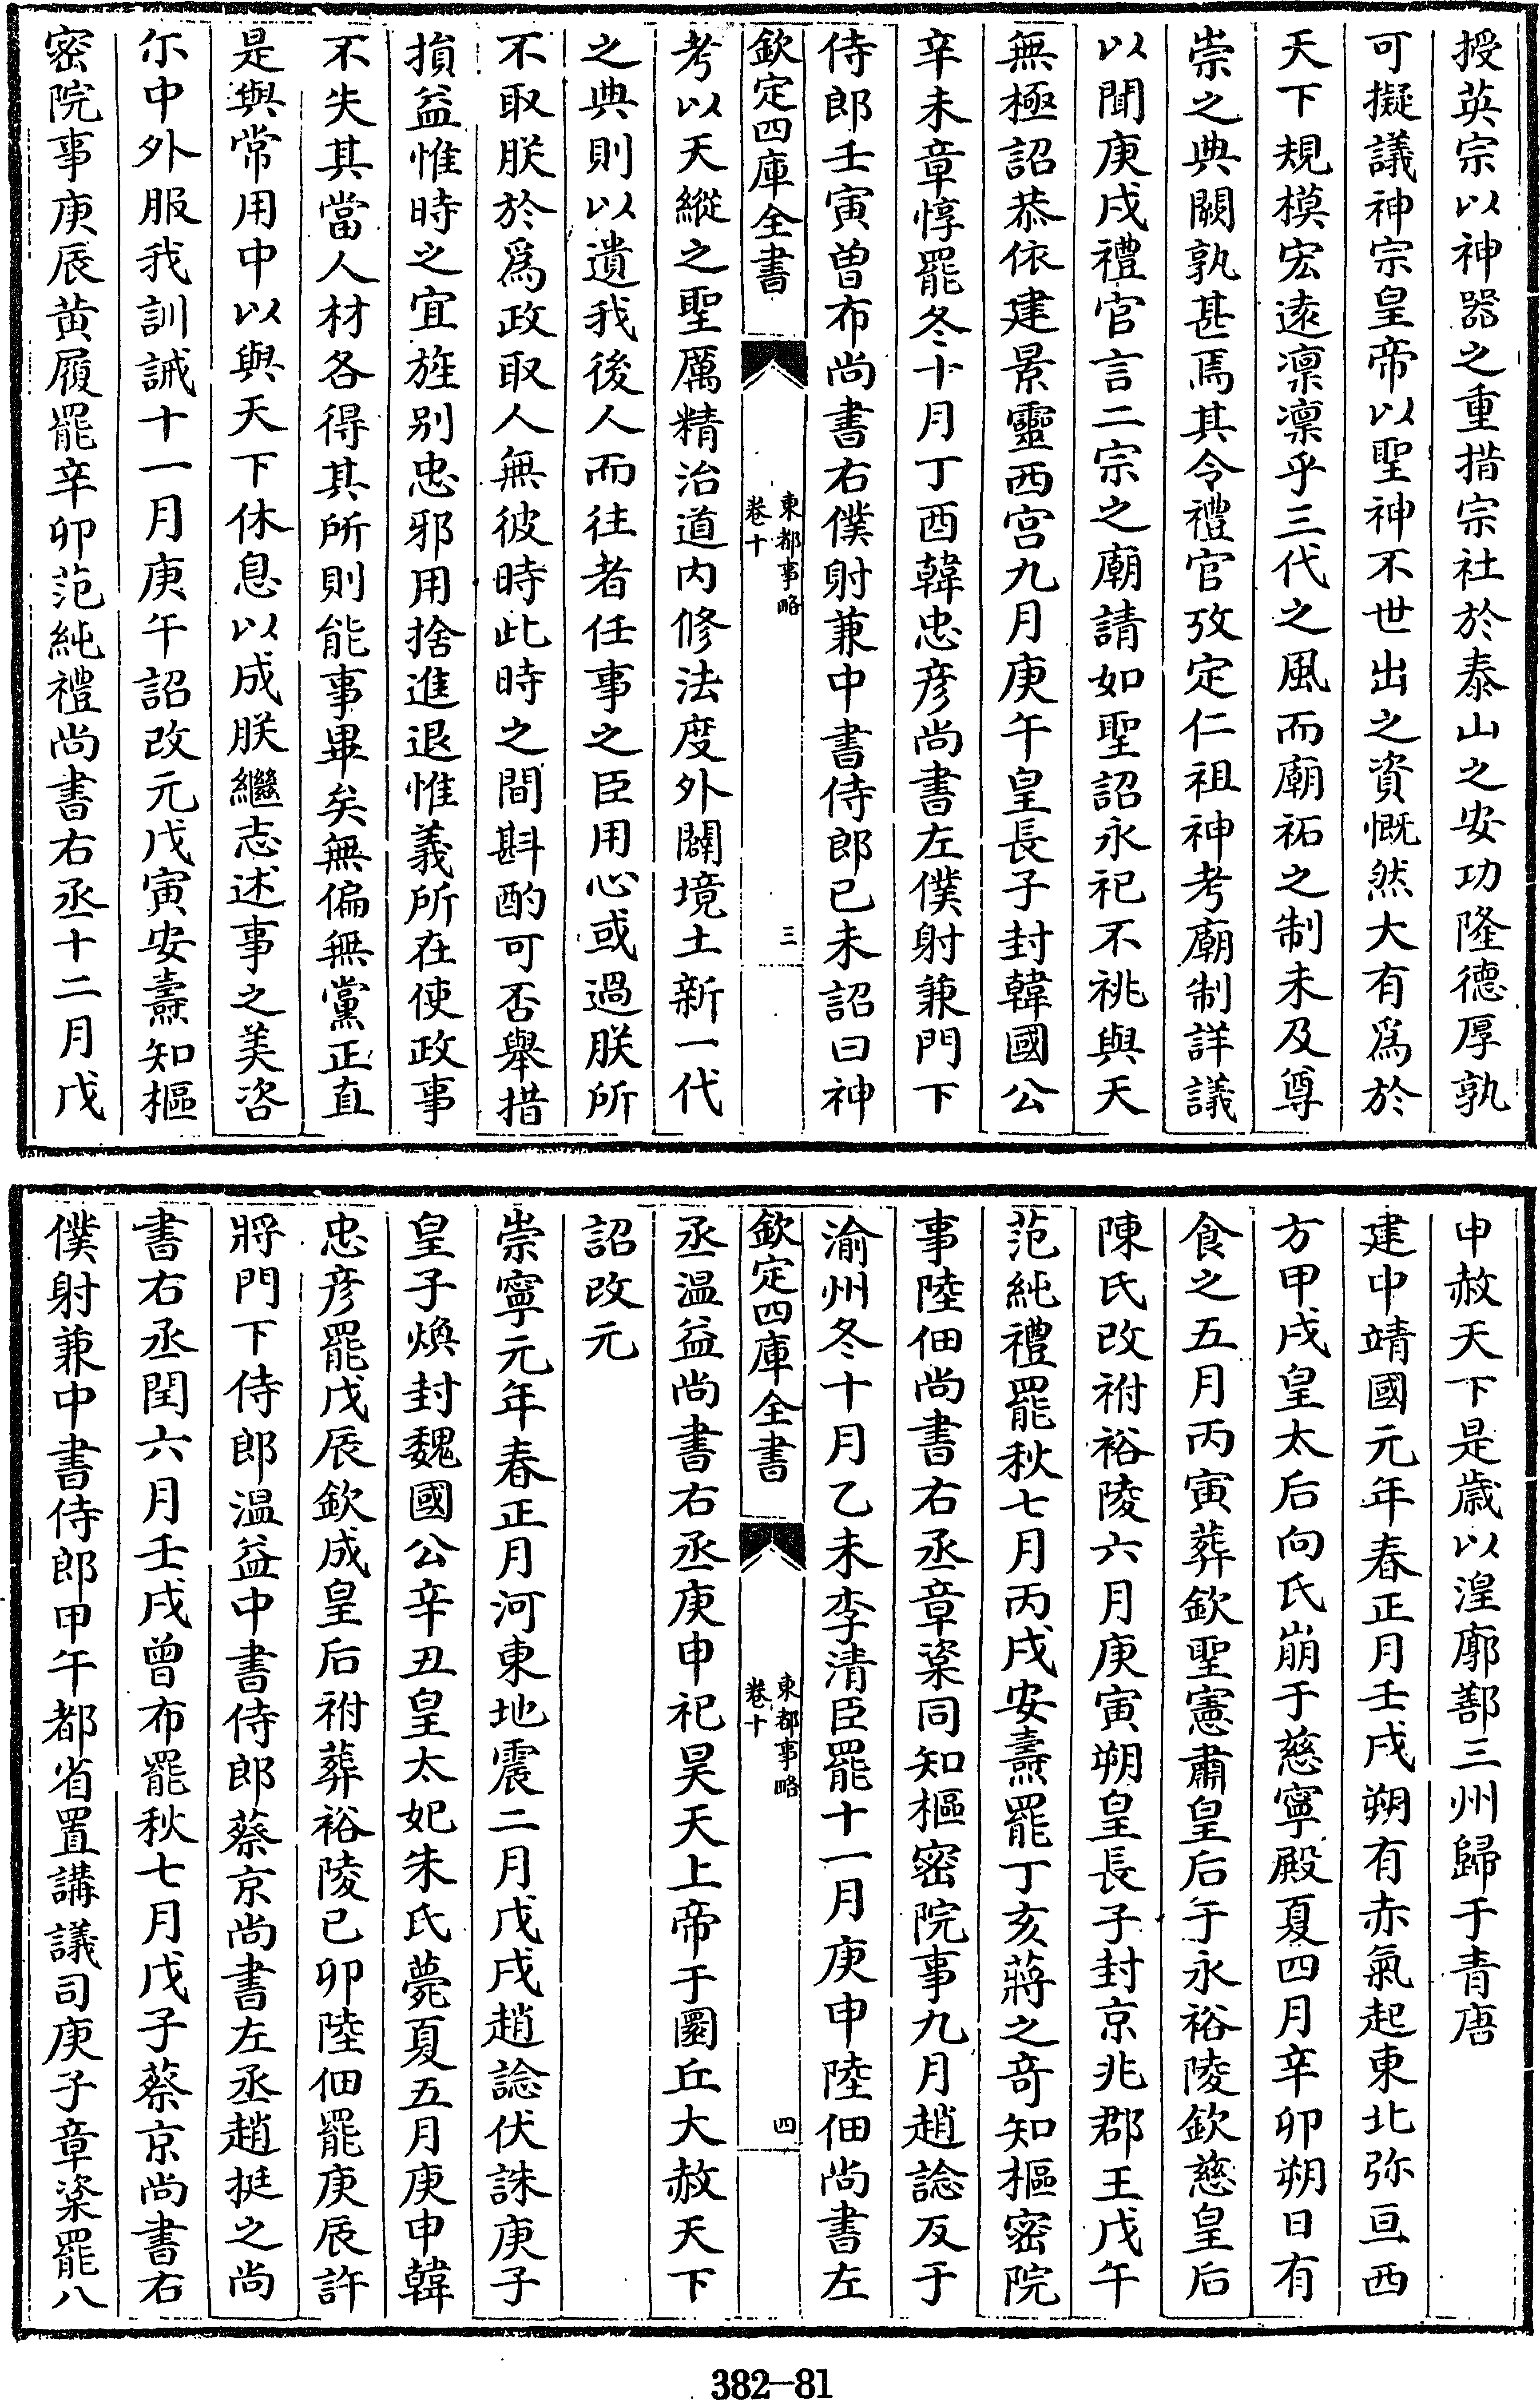 授英宗以神器之重措宗社於泰山之安功隆德厚孰
可擬議神宗皇帝以聖神不世出之資慨然大有爲於
天下規模宏遠凛凛乎三代之風而廟祏之制未及尊
崇之典闕孰甚焉其令禮官攷定仁祖神考廟制詳議
以聞庚戌禮官言二宗之廟請如聖詔永祀不祧與天
無極詔恭依建景靈西宫九月庚午皇長子封韓國公
辛未章惇罷冬十月丁酉韓忠彦尚書左僕射兼門下
侍郎壬寅曽布尚書右僕射兼中書侍郎已未詔曰神
欽定四庫全書
東都事略
卷十
三
考以天縱之聖厲精治道内修法度外闢境土新一代
之典則以遺我後人而往者任事之臣用心或過朕所
不取朕於爲政取人無彼時此時之間斟酌可否舉措
損益惟時之宜旌别忠邪用捨進退惟義所在使政事
不失其當人材各得其所則能事畢矣無偏無黨正直
是與常用中以與天下休息以成朕繼志述事之美咨
尓中外服我訓誡十一月庚午詔改元戊寅安燾知樞
密院事庚辰黄履罷辛卯范純禮尚書右丞十二月戊
申赦天下是歲以湟廓鄯三州歸于青唐
建中靖國元年春正月壬戌朔有赤氣起東北弥亘西
方甲戌皇太后向氏崩于慈寧殿夏四月辛卯朔日有
食之五月丙寅葬欽聖憲肅皇后于永裕陵欽慈皇后
陳氏改祔裕陵六月庚寅朔皇長子封京兆郡王戊午
范純禮罷秋七月丙戌安燾罷丁亥蔣之奇知樞密院
事陸佃尚書右丞章楶同知樞密院事九月趙諗反于
渝州冬十月乙未李清臣罷十一月庚申陸佃尚書左
欽定四庫全書
東都事略
卷十
四
丞温益尚書右丞庚申祀昊天上帝于圜丘大赦天下
詔改元
崇寧元年春正月河東地震二月戊戌趙諗伏誅庚子
皇子煥封魏國公辛丑皇太妃朱氏薨夏五月庚申韓
忠彦罷戊辰欽成皇后祔葬裕陵已卯陸佃罷庚辰許
將門下侍郎温益中書侍郎蔡京尚書左丞趙挺之尚
書右丞閏六月壬戌曾布罷秋七月戊子蔡京尚書右
僕射兼中書侍郎甲午都省置講議司庚子章楶罷八
382-81